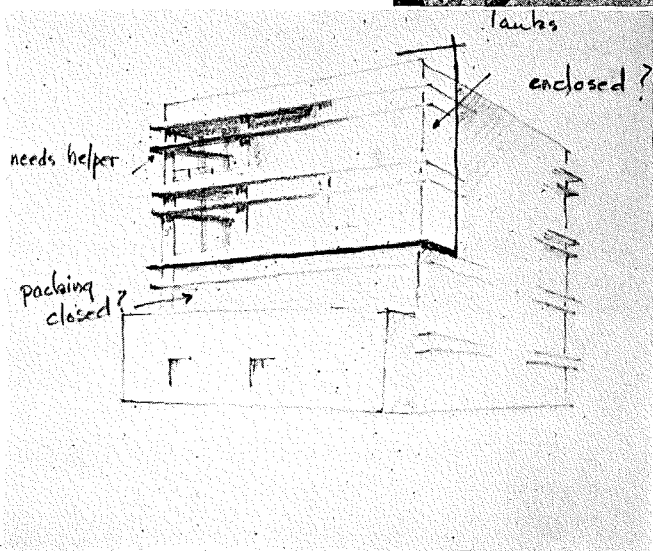 enclosed ?
needs helper
packing
closed ?